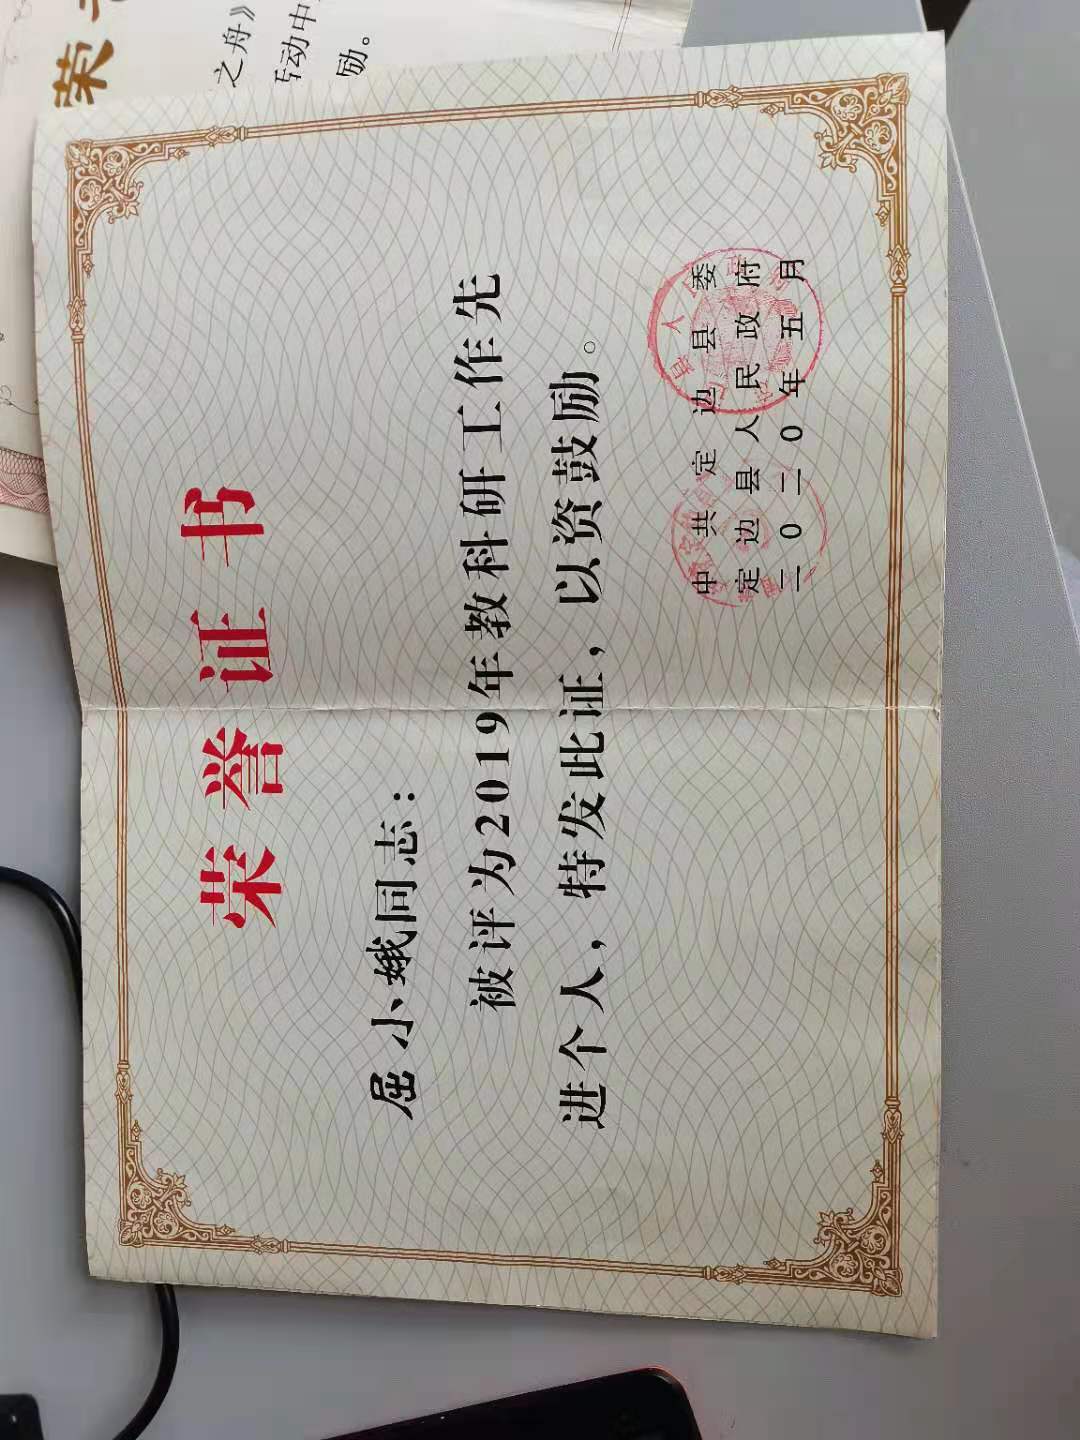 荣誉
之舟》
活动中
励。
荣誉证书
屈小娥同志：
被评为2019年教科研工作先
进个人，特发此证，以资鼓励。
中共定边县委
定边县人民政府
二〇二〇年五月